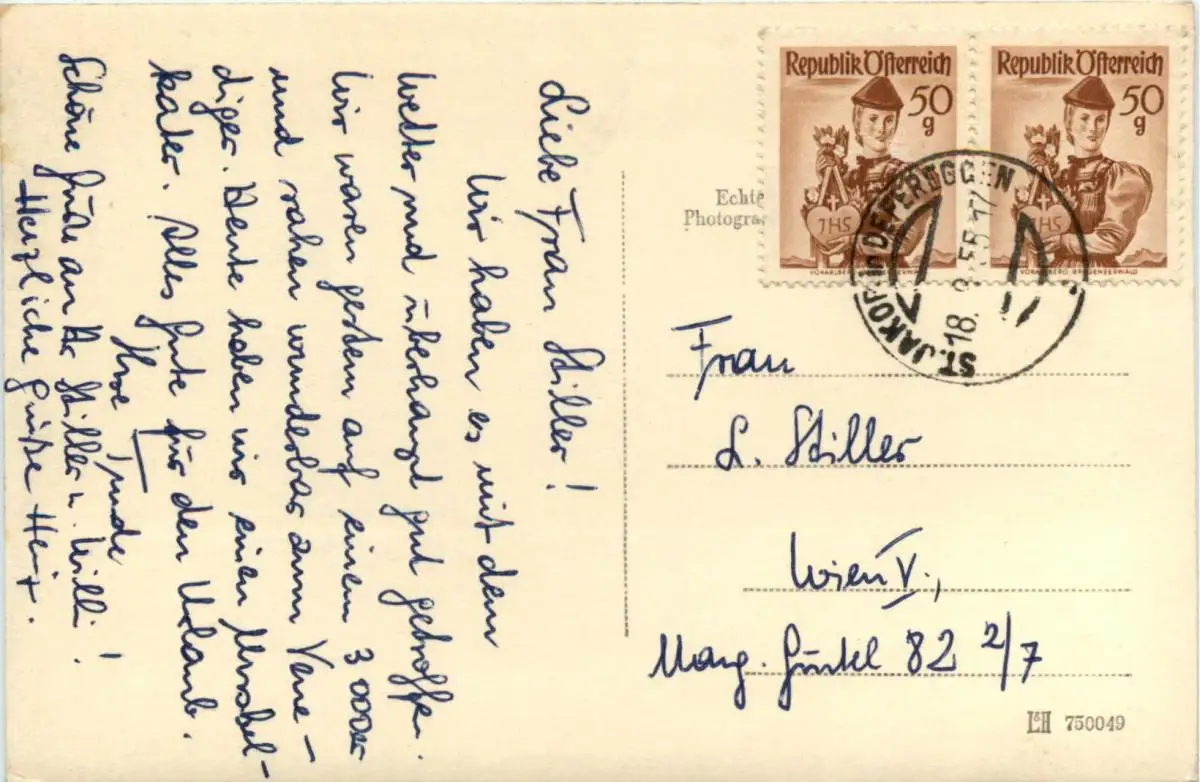 Liebe Frau Stiller!
Wir haben es mit dem
Wetter und überhaupt gut getroffen.
Wir waren gestern auf einem 3000der
und sahen wunderbar zum Vene-
diger. Heute haben wir einen Muskel-
kater. Alles Gute für den Urlaub.
Ihre Trude
Schöne Grüße an Dr Stiller u. Willi!
Herzliche Grüße
Republik Österreich
50
g
JHS
VORARLBERG BREGENZERWALD
Republik Österreich
50
g
JHS
VORARLBERG BREGENZERWALD
ST. JAKOB IN DEFEREGGEN
18.
Echte
Photogra
Frau
L. Stiller
Wien V.,
Marg. Gürtel 82 2/7
L&H 750049